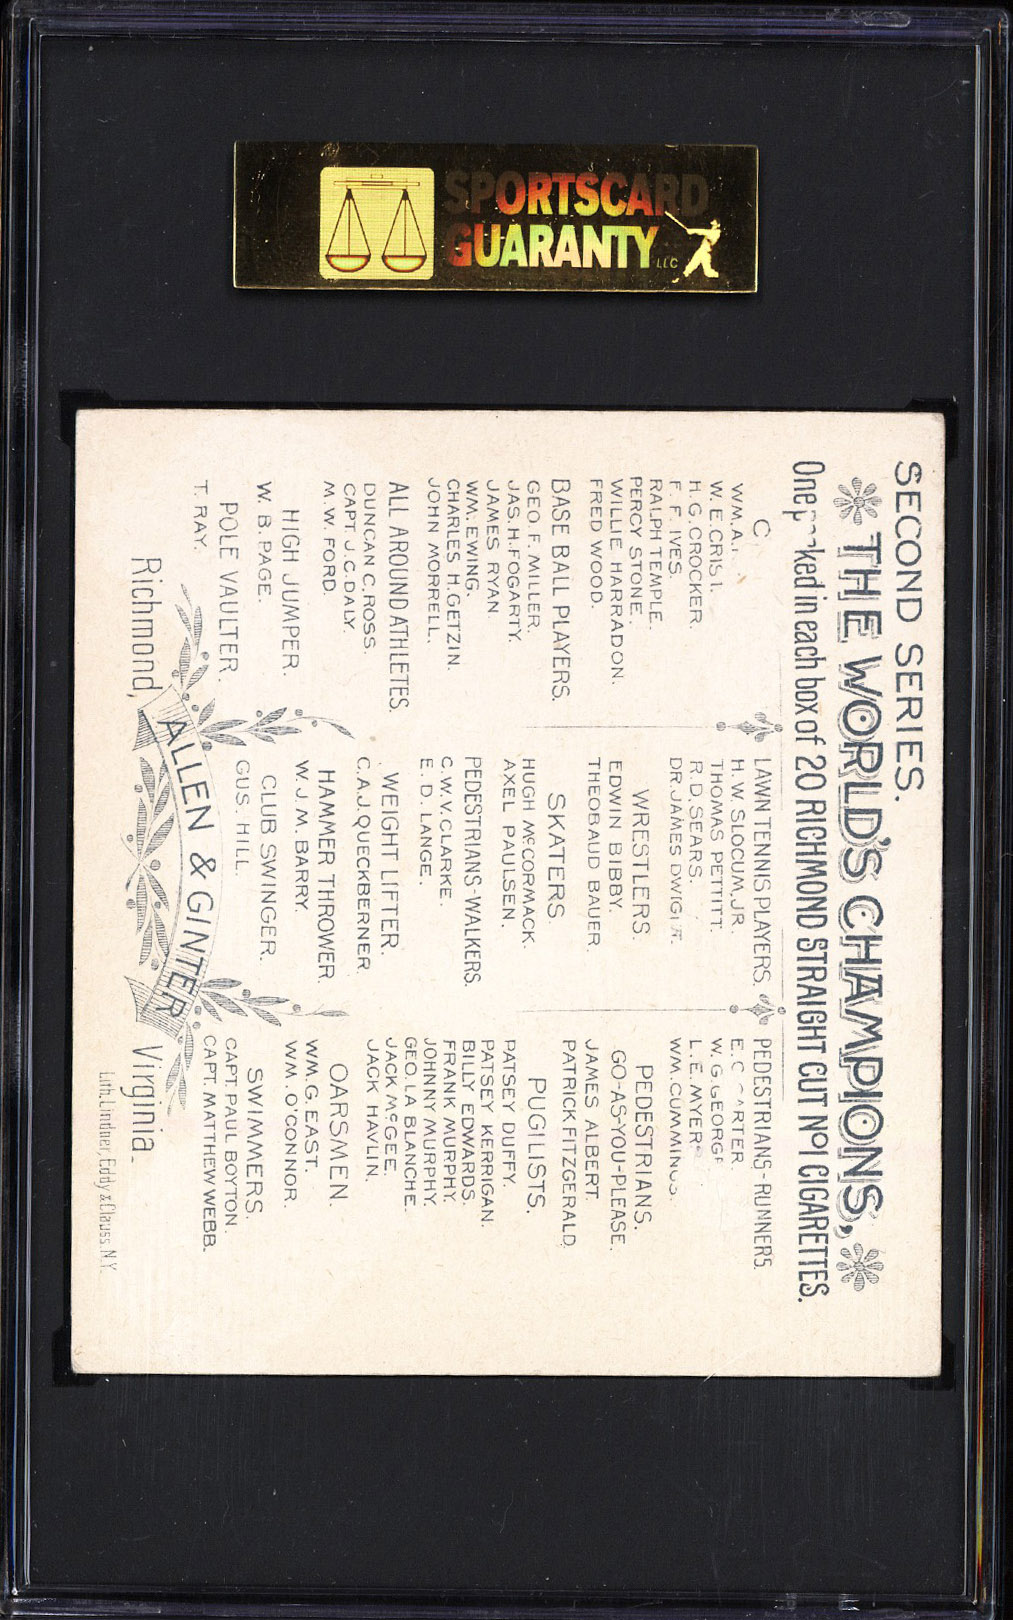 SPORTSCARD
GUARANTY LLC
SECOND SERIES.
THE WORLD'S CHAMPIONS,
One packed in each box of 20 RICHMOND STRAIGHT CUT Nº1 CIGARETTES.
W. E. CRIST.
H. G. CROCKER.
F. F. IVES.
RALPH TEMPLE.
PERCY STONE.
WILLIE HARRADON.
FRED WOOD.
BASE BALL PLAYERS.
GEO. F. MILLER.
JAS. H. FOGARTY.
JAMES RYAN.
WM. EWING.
CHARLES H. GETZIN.
JOHN MORRELL.
ALL AROUND ATHLETES.
DUNCAN C. ROSS.
CAPT. J. C. DALY.
M. W. FORD.
HIGH JUMPER.
W. B. PAGE.
POLE VAULTER.
T. RAY.
LAWN TENNIS PLAYERS.
H. W. SLOCUM, JR.
THOMAS PETTITT.
R. D. SEARS.
DR. JAMES DWIGHT.
WRESTLERS.
EDWIN BIBBY.
THEOBAUD BAUER.
SKATERS.
HUGH McCORMACK.
AXEL PAULSEN.
PEDESTRIANS-WALKERS.
C. W. V. CLARKE.
E. D. LANGE.
WEIGHT LIFTER.
C. A. J. QUECKBERNER.
HAMMER THROWER.
W. J. M. BARRY.
CLUB SWINGER.
GUS. HILL.
PEDESTRIANS-RUNNERS.
E. C. CARTER.
W. G. GEORGE.
L. E. MYERS.
WM. CUMMINGS.
PEDESTRIANS.
GO-AS-YOU-PLEASE.
JAMES ALBERT.
PATRICK FITZGERALD.
PUGILISTS.
PATSEY DUFFY.
PATSEY KERRIGAN.
BILLY EDWARDS.
FRANK MURPHY.
JOHNNY MURPHY.
GEO. LA BLANCHE.
JACK McGEE.
JACK HAVLIN.
OARSMEN.
WM. G. EAST.
WM. O'CONNOR.
SWIMMERS.
CAPT. PAUL BOYTON.
CAPT. MATTHEW WEBB.
ALLEN & GINTER
Richmond, Virginia.
Lith. Lindner, Eddy & Clauss N.Y.